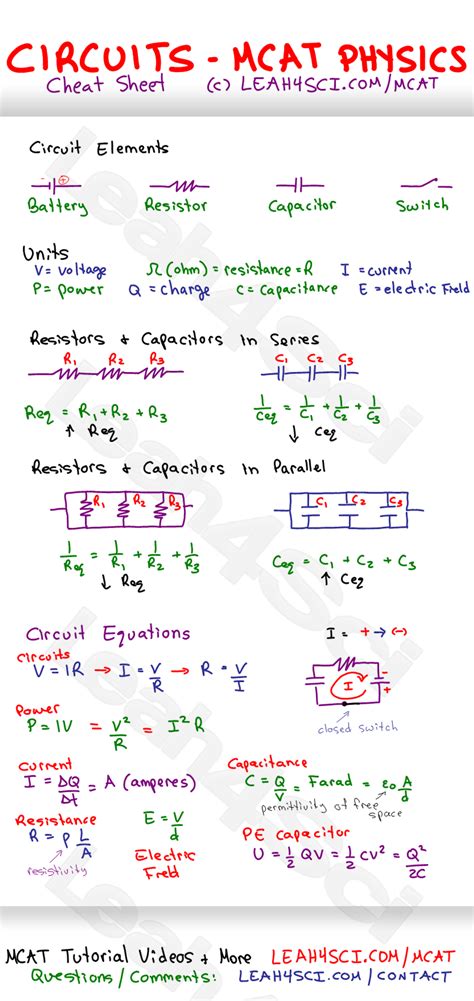 CIRCUITS - MCAT PHYSICS
Cheat Sheet (c) LEAH4SCI.COM/MCAT
Circuit Elements
Battery Resistor Capacitor Switch
Units
V = voltage Ω (ohm) = resistance = R I = current
P = power Q = charge C = capacitance E = electric Field
Resistors & Capacitors In Series
R1 R2 R3 C1 C2 C3
Req = R1 + R2 + R3 1/Ceq = 1/C1 + 1/C2 + 1/C3
↑ Req ↓ Ceq
Resistors & Capacitors In Parallel
R1 R2 R3 C1 C2 C3
1/Req = 1/R1 + 1/R2 + 1/R3 Ceq = C1 + C2 + C3
↓ Req ↑ Ceq
Circuit Equations I = + → (-)
Circuits
V = IR → I = V/R → R = V/I
- + I
closed switch
Power
P = IV = V²/R = I²R
Current
I = ΔQ/Δt = A (amperes)
Capacitance
C = Q/V = Farad = ε0 A/d
permittivity of free space
Resistance
R = ρ L/A
resistivity
E = V/d
Electric
Field
PE capacitor
U = 1/2 QV = 1/2 CV² = Q²/2C
MCAT Tutorial Videos & More LEAH4SCI.COM/MCAT
Questions / Comments: LEAH4SCI.COM / CONTACT
Leah4Sci
Leah4Sci